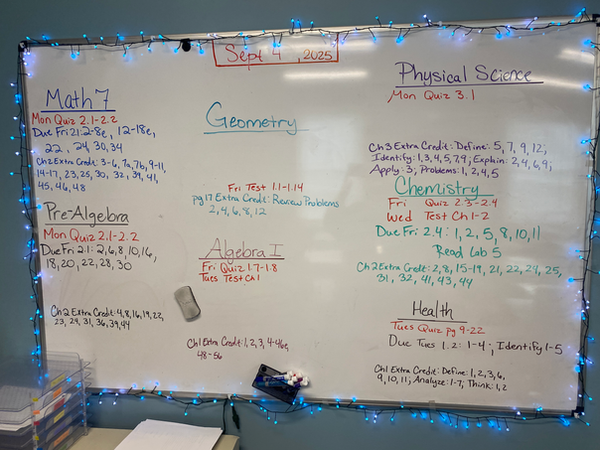 Sept 4, 2025
Math 7
Mon Quiz 2.1-2.2
Due Fri 2.1: 2-8e, 12-18e,
22, 24, 30, 34
Ch2 Extra Credit: 3-6, 7a, 7b, 9-11,
14-17, 23, 25, 30, 32, 39, 41,
45, 46, 48
Pre-Algebra
Mon Quiz 2.1-2.2
Due Fri 2.1: 2, 6, 8, 10, 16,
18, 20, 22, 28, 30
Ch 2 Extra Credit: 4, 8, 16, 19, 22,
23, 29, 31, 36, 39, 44
Geometry
Fri Test 1.1-1.14
pg 17 Extra Credit: Review Problems
2, 4, 6, 8, 12
Algebra I
Fri Quiz 1.7-1.8
Tues Test Ch 1
Ch1 Extra Credit: 1, 2, 3, 4-46e,
48-56
Physical Science
Mon Quiz 3.1
Ch 3 Extra Credit: Define: 5, 7, 9, 12,
Identify: 1, 3, 4, 5, 7, 9; Explain: 2, 4, 6, 9;
Apply: 3; Problems: 1, 2, 4, 5
Chemistry
Fri Quiz 2.3-2.4
Wed Test Ch 1-2
Due Fri 2.4: 1, 2, 5, 8, 10, 11
Read Lab 5
Ch 2 Extra Credit: 2, 8, 15-19, 21, 22, 24, 25,
31, 32, 41, 43, 44
Health
Tues Quiz pg 9-22
Due Tues 1.2: 1-4; Identify 1-5
Ch1 Extra Credit: Define: 1, 2, 3, 6,
9, 10, 11; Analyze: 1-7; Think: 1, 2